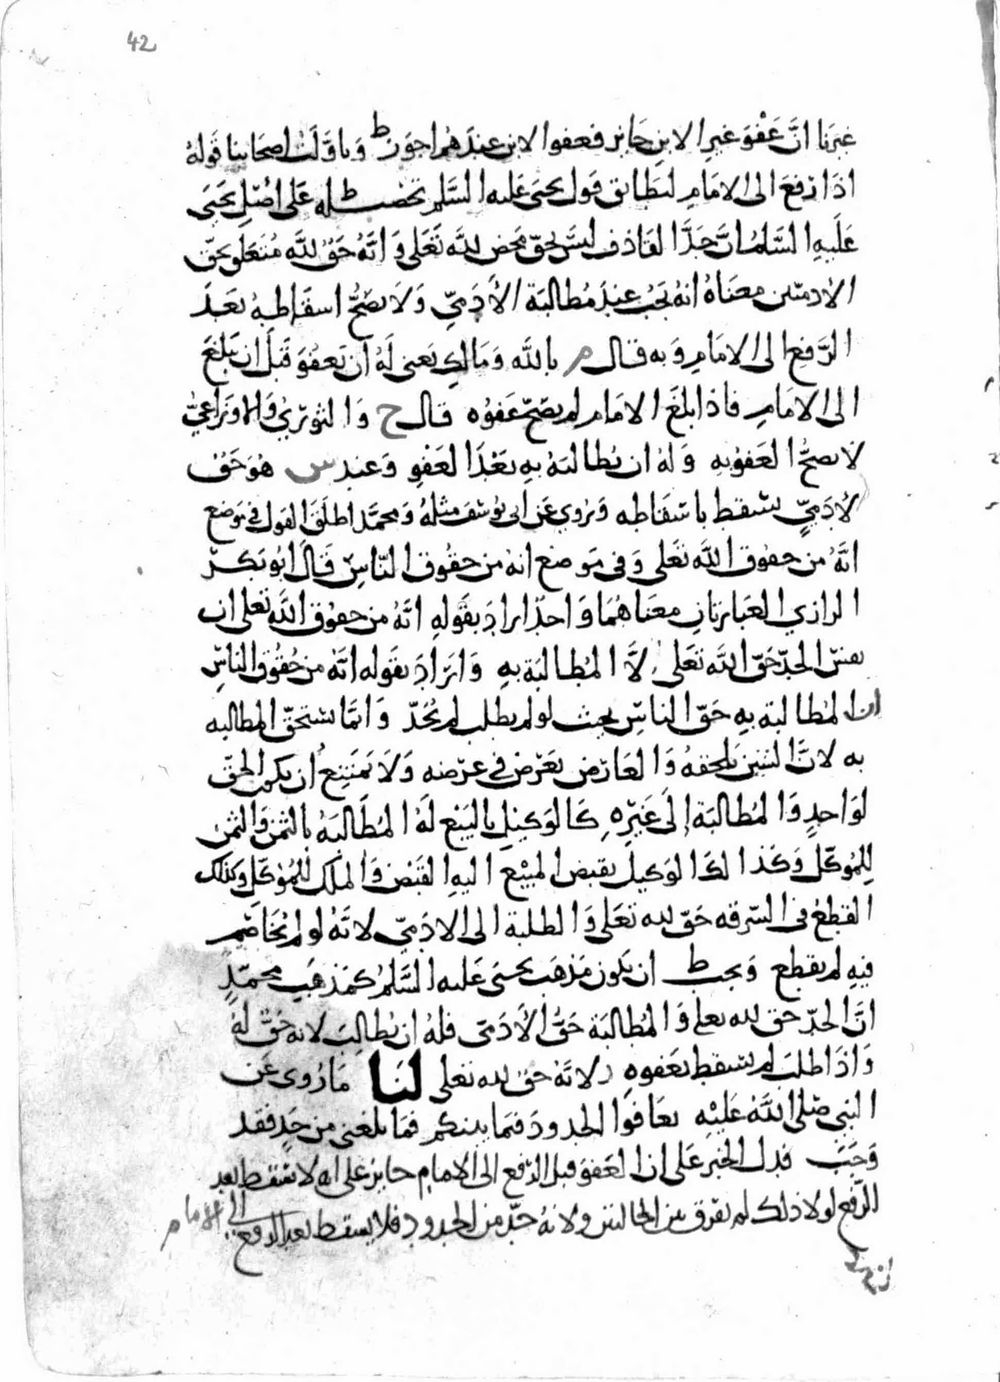 42
غيرنا انَّ عَفْوَ غيرِ الابنِ جَايز فعفو الابن عندهم اجوز ط وتاوَّلت اصحابنا قوله
اذا رُفِعَ الى الامَامِ ليطابق قول يحيى عليه السَّلم تحصـــط له عَلَى اصْلِ يحيى
عَلَيهِ السَّلم انَّ حَدَّ القاذف ليسَ بحقٍّ محضٍ لله تعَلى وَانَّهُ حَقٌّ لله مُتعَلق بحقّ
الادميّين معنَاهُ انهُ يَجبُ عندَ مُطالبَة الأدَميّ وَلَا يصَحُّ اسقَاطهُ بَعدَ
الرَّفعِ الى الامَامِ وَبه قال م بالله وَمَالك يَعني لَهُ ان يَعفُوَ قَبلَ ان يَبلغَ
الى الامَامِ فاذا بلَغَ الامَام لم يصَحّ عَفوُه قال ح وَالثوريُّ وَالاوزاعيُّ
لا يصحُّ العَفوُ به وَلهُ ان يُطالبَهُ بهِ بَعْدَ العَفوِ وَعندَ س هُوَ حَقٌّ
لأدَميٍّ يسْقط باسْقَاطه وَرُوي عَن ابي يُوسُف مثلهُ وَمحمَّد اطلقَ القول في مَوضع
انَّهُ من حقوق الله تعَلى وَفي مَوضع انهُ من حقُوق النّاسِ قَالَ ابُو بَكر
الرازي العبَارتانِ معنَاهُمَا وَاحدٌ اراد بقَولهِ انَّهُ من حقوق الله تعلى ان
نفسَ الحدِّ حَقّ الله تعَلَى لاَ المُطَالبَة بهِ وَارَادَ بقَوله انّهُ من حُقُوق الناسِ
ان المُطالبة بهِ حَقّ الناسِ بحيث لو لم يطلب لم يُحَدّ وَانمَّا يستحقّ المطالبه
به لانَّ الشين يَلحقهُ وَالعَارُض يَعْرُض في عرْضه وَلَا يَمتنِعُ ان يكون الحقّ
لوَاحدٍ وَالمُطالبَة إلَى غَيرِه كَالوَكيلِ بالبَيْع لَهُ المُطَالبَهُ بالثمَن وَالثمنُ
لِلمُوَكّل وَكَذا لكَ الوَكيلُ بقبض المبيْع اليهِ القَبْضُ وَالملك للمُوَكّل وكَذلك
القطعُ في السّرقه حَقّ لله تعَلَى وَالطلبَة الى الادَميّ لانّهُ لو لم يُخَاصِم
فيه لم يقطع وَيجــط ان يكون مَذهَب يحيى عَليه السَّلمُ كمَذهَبِ محمّدٍ
انَّ الحدّ حق لله تعلى وَالمُطالبَة حَقُّ الأدَميّ فلهُ ان يُطالِبَ لانهُ حَقٌّ لهُ
وَاذا طلبَ لم يسْقط بعَفوهِ لانّهُ حَقٌّ لله تعلى لَنا مَا رُوي عَن
النبي صَلى اللهُ عَلَيْه تعَافوُا الحدودَ فيمَا بينكم فمَا بلَغَني من حَدٍ فقد
وَجَبَ فدل الخبر عَلى ان العَفوَ قبلَ الرّفع الى الامام جايز على انه لا يسْقط بعد
الرّفع لولا ذلك لم يفرق بَين الحالتين ولانهُ حَدّ من الحدود فلا يسقط بعد الرفع الى الامام